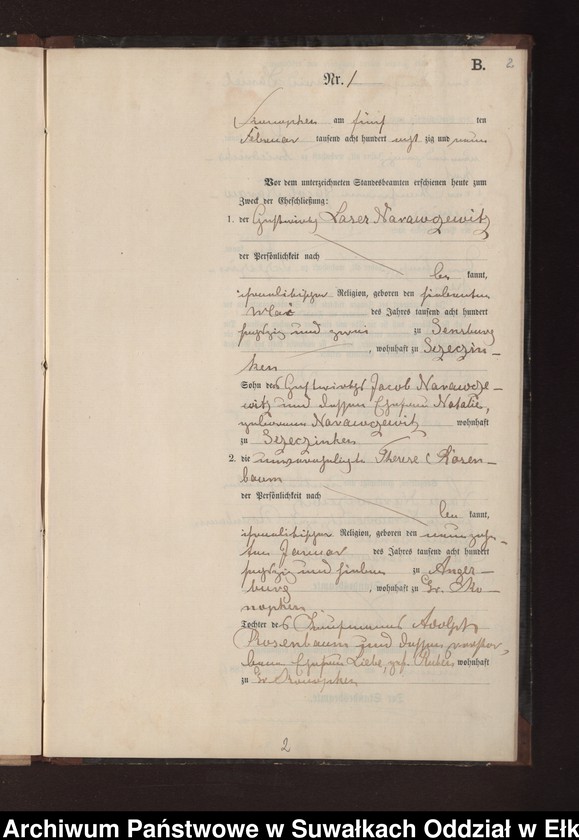 B.
2
Nr. 1
Skonopken am fünf ten
Februar tausend acht hundert acht zig und neun
Vor dem unterzeichneten Standesbeamten erschienen heute zum
Zweck der Eheschließung:
1. der Gastwirth Laser Narawczewitz
der Persönlichkeit nach
be kannt,
israelitischer Religion, geboren den siebenten
Mai des Jahres tausend acht hundert
sechszig und zwei zu Sensburg
, wohnhaft zu Szeczin-
ken
Sohn des Gastwirths Jacob Narawcze-
witz und dessen Ehefrau Natalie,
geborenen Narawczewitz wohnhaft
zu Szeczinken
2. die unverehelichte Therese Rosen-
baum
der Persönlichkeit nach
be kannt,
israelitischer Religion, geboren den neunzehn-
ten Januar des Jahres tausend acht hundert
sechszig und sieben zu Anger-
burg , wohnhaft zu Gr. Sko-
nopken
Tochter des Kaufmanns Adolph
Rosenbaum und dessen verstor-
benen Ehefrau Liebe, geb. wohnhaft
zu Gr Skonopken
2
Archiwum Państwowe w Suwałkach Oddział w Ełku